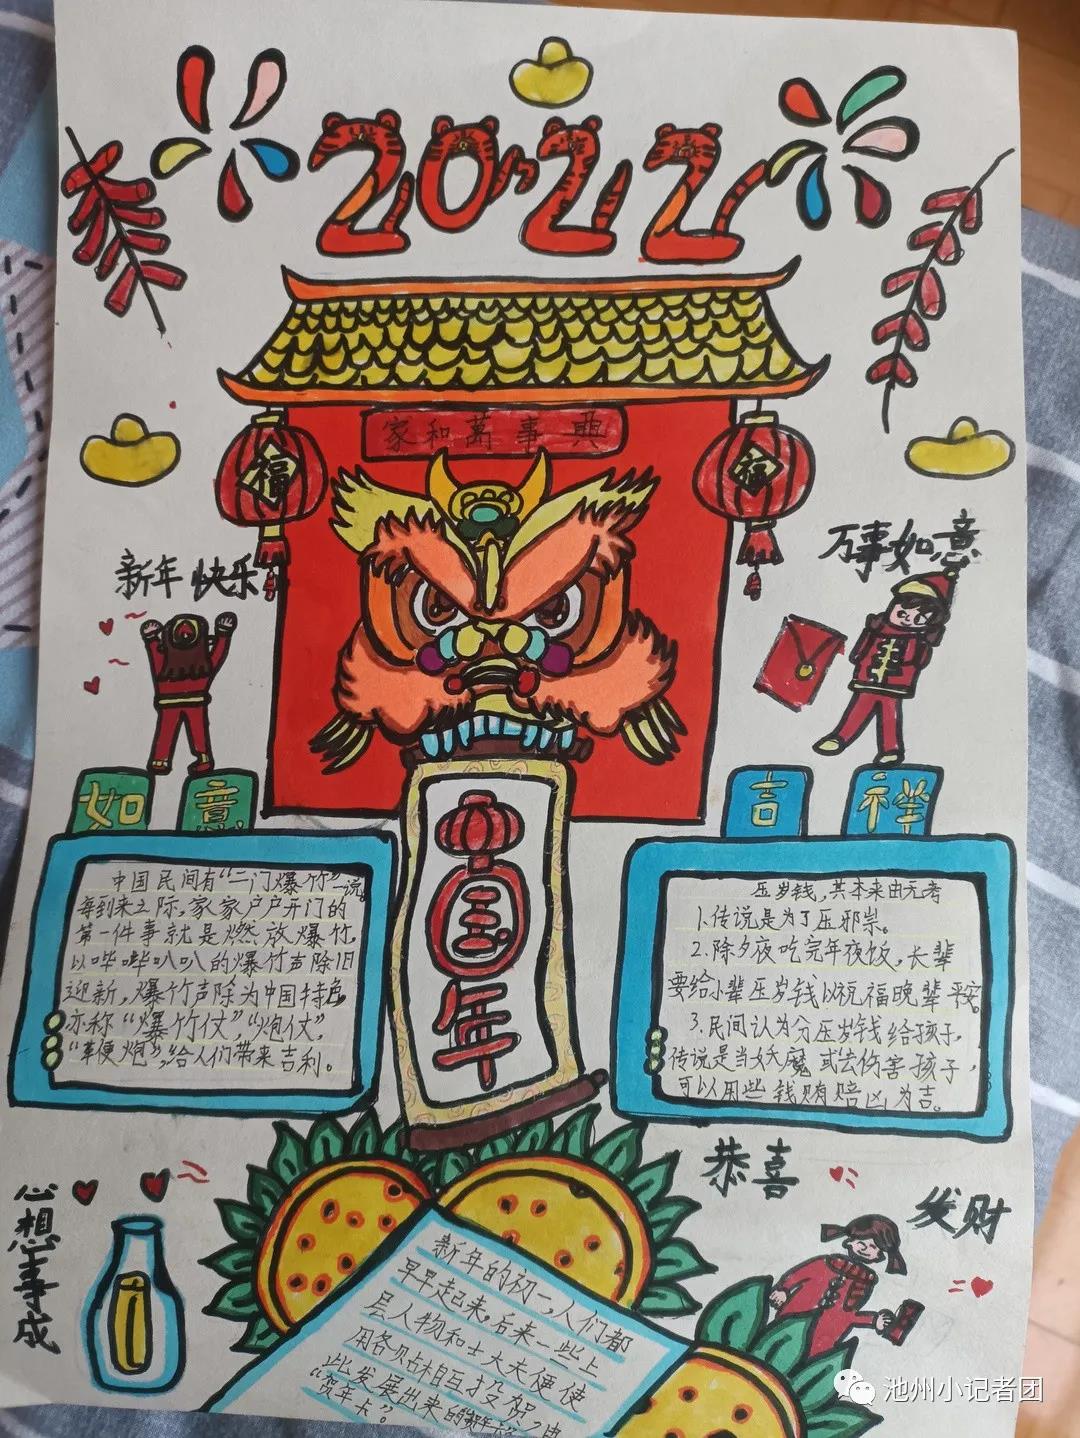 2022
家和萬事興
福
福
新年快乐
万事如意
如意
吉祥
中国民间有“二门爆竹”一说。
每到来之际,家家户户开门的
第一件事就是燃放爆竹,
以哔哔叭叭的爆竹声除旧
迎新,爆竹声除为中国特色,
亦称“爆竹仗”“炮仗”
“革便炮”,给人们带来吉利。
年
压岁钱,其本来由元者
1.传说是为了压邪祟。
2.除夕夜吃完年夜饭,长辈
要给小辈压岁钱以祝福晚辈平安
3.民间认为分压岁钱给孩子,
传说是当妖魔或去伤害孩子,
可以用些钱贿赔凶为吉。
恭喜
发财
心想事成
新年的初一,人们都
早早走起来,后来一些上
层人物和士大夫便使
用各贝占相互投贺,由
此发展出来的
“贺年卡”。
池州小记者团